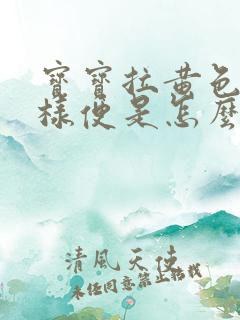 寶寶拉黃色
樣便是怎麼
清風天使
未经同意禁止转载